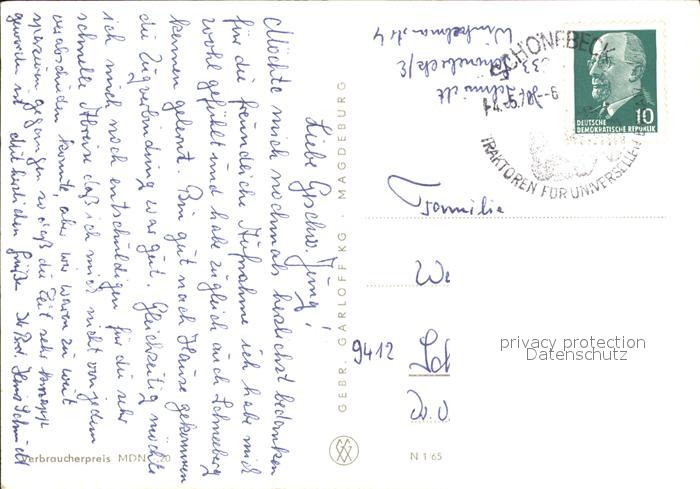 Liebe Geschw. Jung!
Möchte mich nochmals herzlichst bedanken
für die freundliche Aufnahme ich habe mich
wohl gefühlt und habe zugleich auch Schneeberg
kennen gelernt. Bin gut nach Hause gekommen
die Zugverbindung war gut. Gleichzeitig möchte
ich mich noch entschuldigen für die sehr
schnelle Abreise daß ich mich nicht von jedem
verabschieden konnte, aber wir waren zu weit
spazieren gegangen so daß die Zeit sehr knapp
geworden ist. Mit herzlichen Grüßen Ihr Hans Schmidt
Verbraucherpreis MDN -,20
GEBR. GARLOFF KG · MAGDEBURG
N 1/65
Schmidt
33 Schönebeck/E
SCHÖNEBECK
TRAKTOREN FÜR UNIVERSELLEN
10
DEUTSCHE
DEMOKRATISCHE REPUBLIK
Familie
We
9412
Sch
privacy protection
Datenschutz